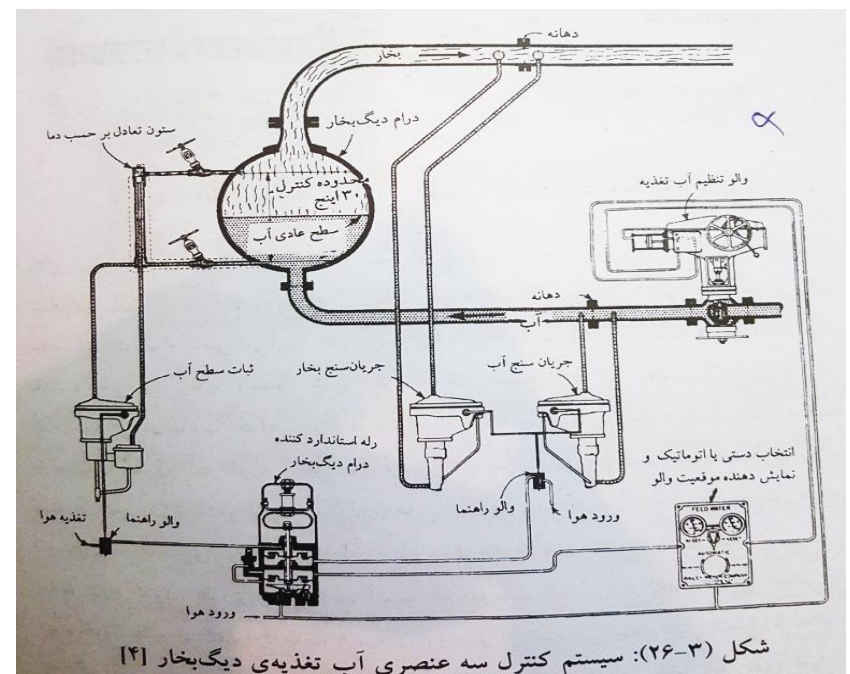 دهانه
بخار
درام دیگ‌بخار
ستون تعادل بر حسب دما
حدوده کنترل
۳۰ اینچ
سطح عادی آب
والو تنظیم آب تغذیه
دهانه
آب
جریان سنج آب
جریان‌سنج بخار
ثبات سطح آب
رله استاندارد کننده
درام دیگ‌بخار
انتخاب دستی یا اتوماتیک و
نمایش دهنده موقعیت والو
والو راهنما
ورود هوا
والو راهنما
تغذیه هوا
FEED WATER
AUTOMATIC
ورود هوا
شکل (۳-۲۶): سیستم کنترل سه عنصری آب تغذیه‌ی دیگ‌بخار [۴]